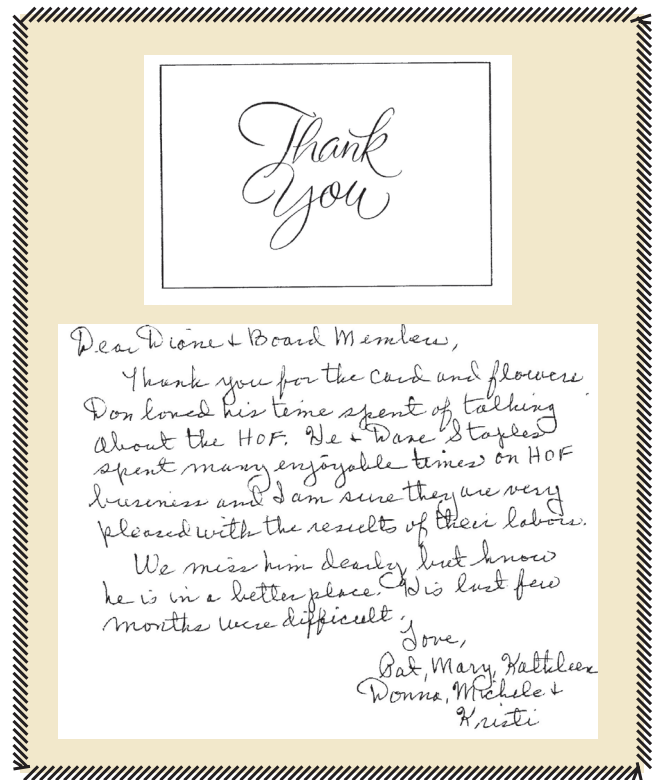 Thank
You
Dear Diane + Board Members,
Thank you for the card and flowers
Don loved his time spent of talking
about the HOF. He + Dave Staples
spent many enjoyable times on HOF
business and I am sure they are very
pleased with the results of their labors.
We miss him dearly but know
he is in a better place. His last few
months were difficult.
Love,
Pat, Mary, Kathleen
Donna, Michele +
Kristi